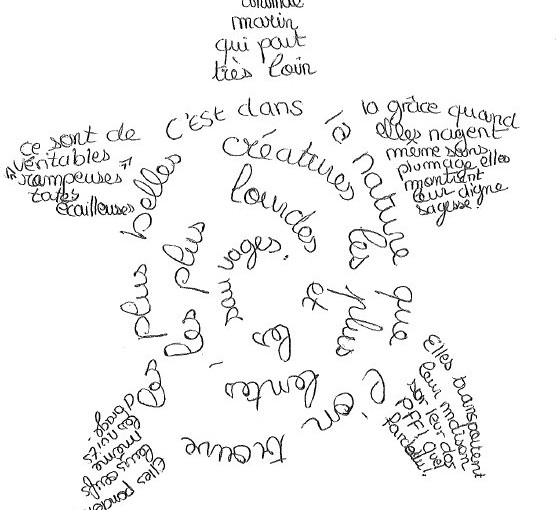 marin
qui part
très loin
ce sont de
"véritables
rampeuses"
écailleuses
la grâce quand
elles nagent
même sans
plumage elles
montrent
leur digne
sagesse!
C'est dans la nature que l'on trouve les plus belles
créatures les plus lentes, les plus
lourdes et les
vages.
Elles transportent
leur maison
sur leur dos
Pff! quel
fardeau!
Elles
leurs œufs
même
les nuits
d'orage